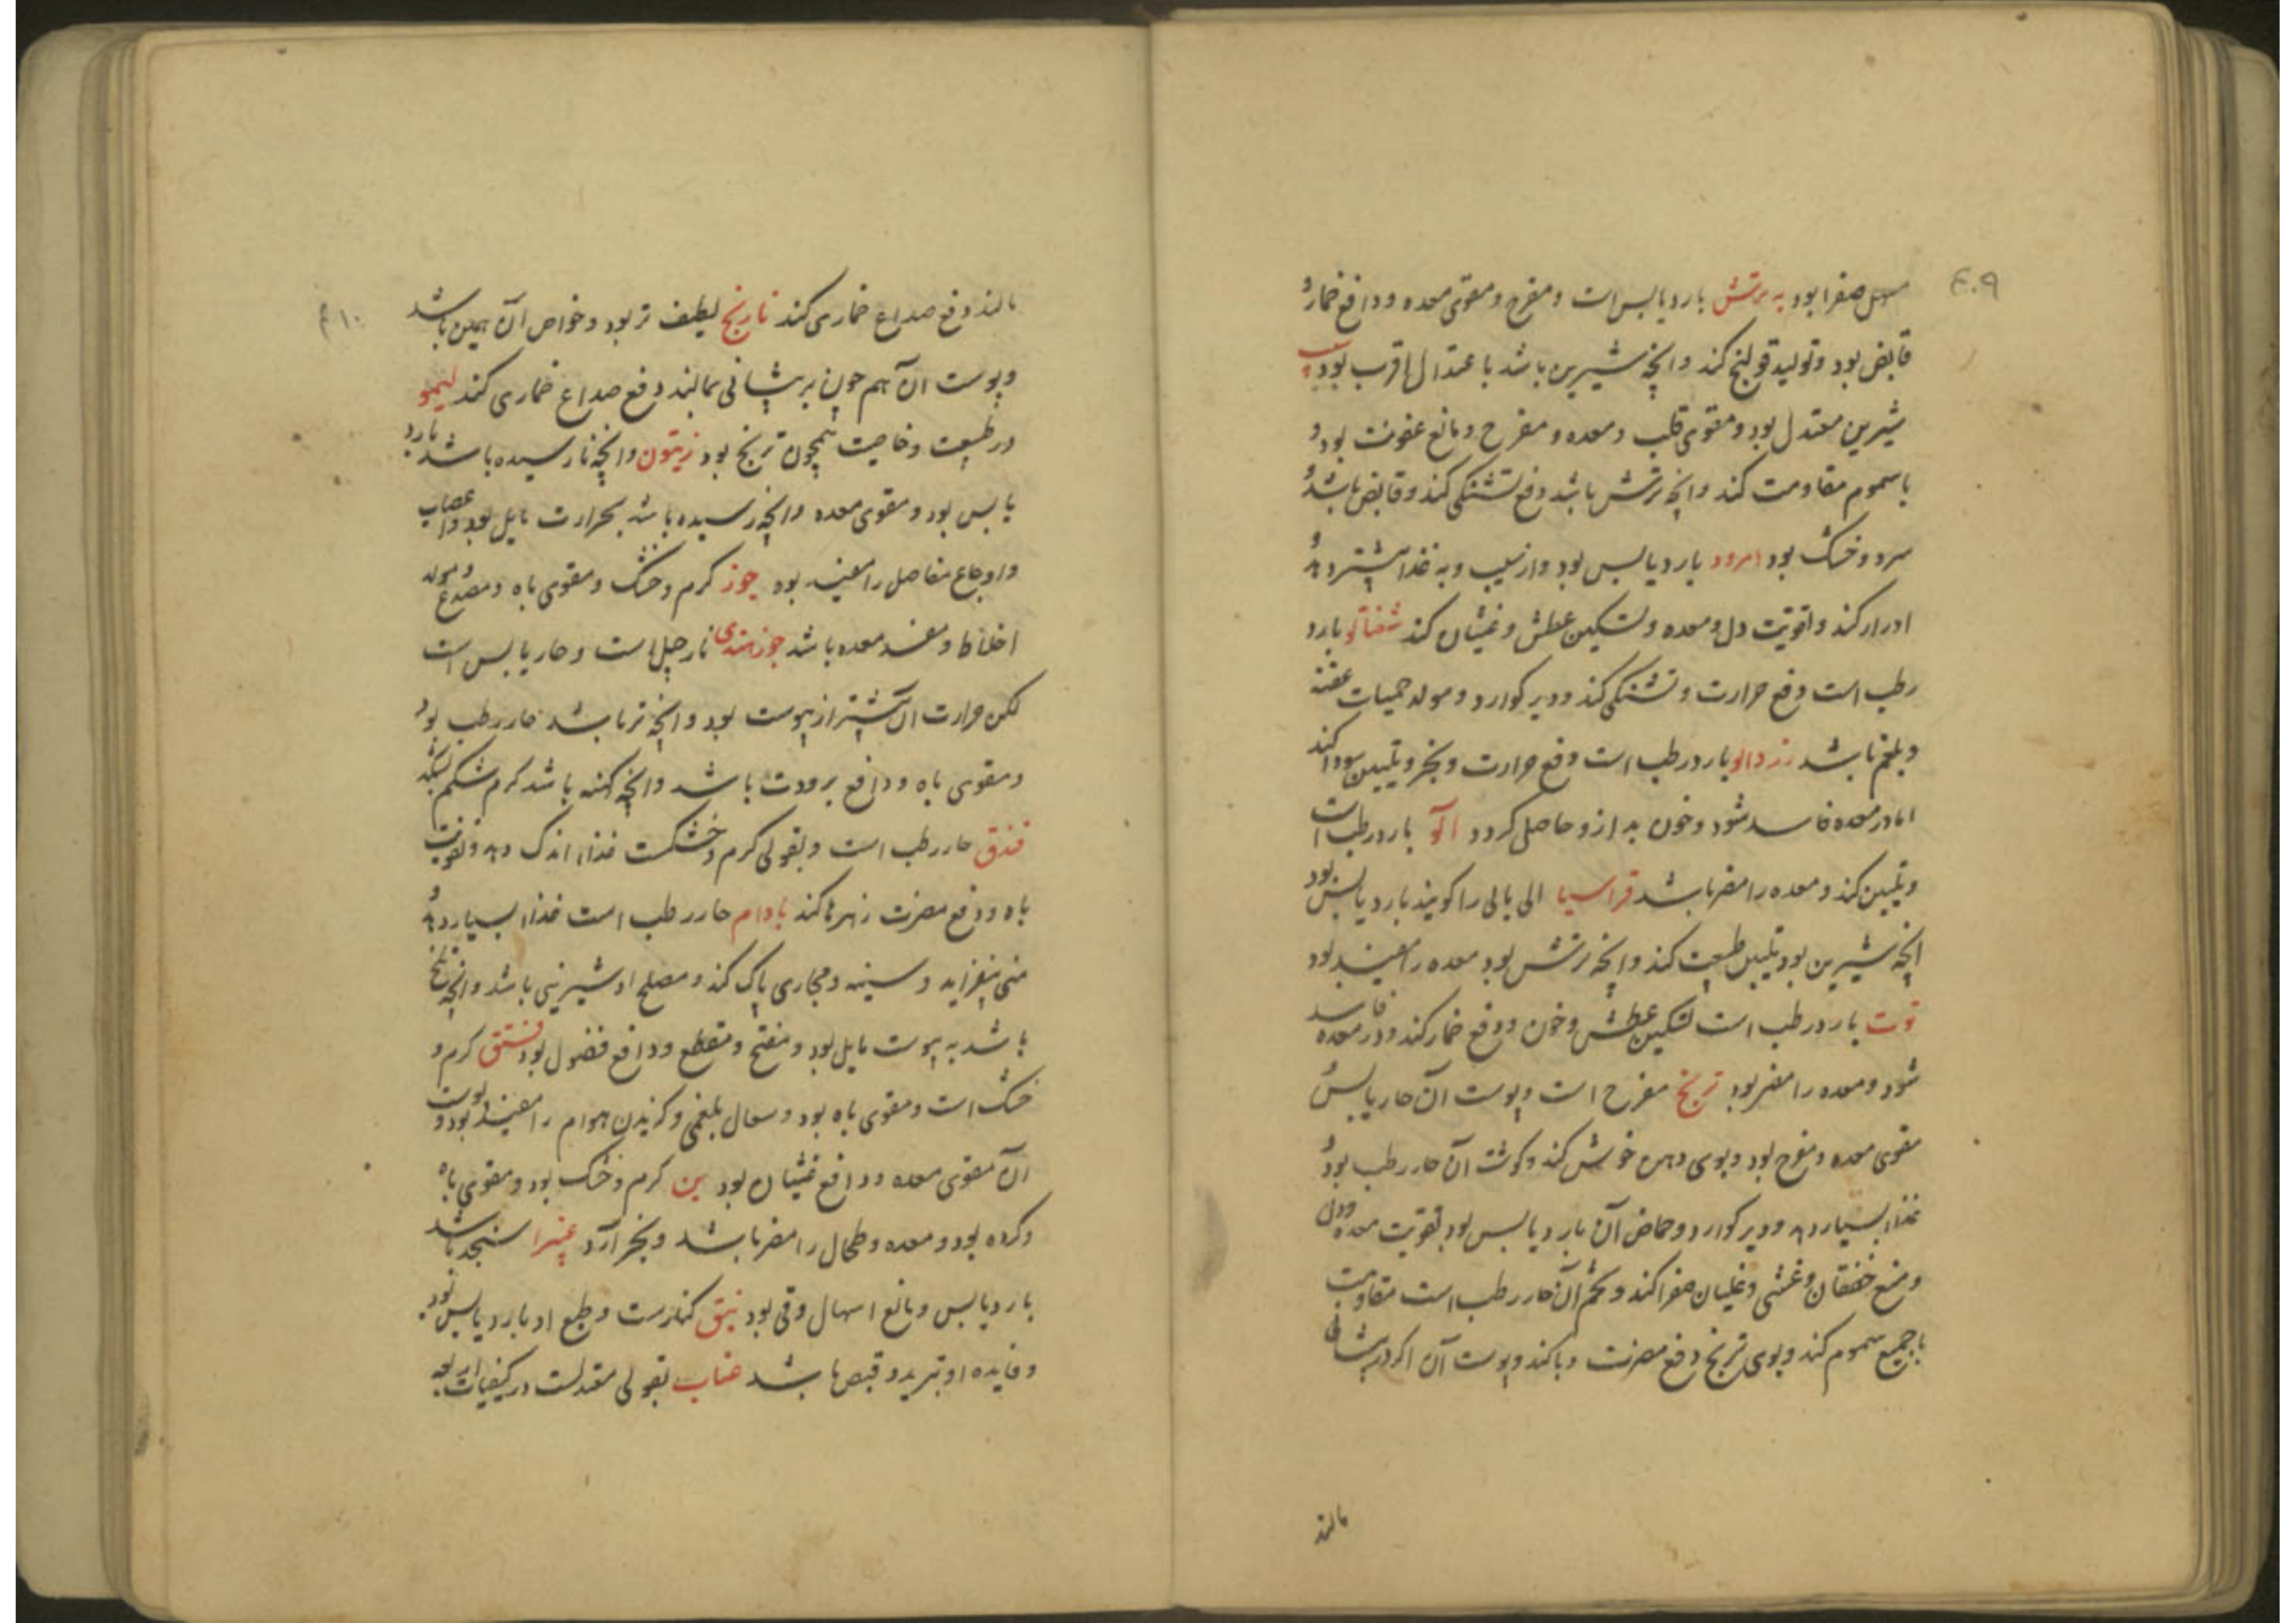 ۴۰۹
مسهل صفرا بود به ترش بارد یابس است و مفرح و مقوی معده و دافع خمار و
قابض بود و تولید قولنج کند و انچه شیرین باشد باعتدال اقرب بود سیب
شیرین معتدل بود و مقوی قلب و معده و مفرح و مانع عفونت بود و
با سموم مقاومت کند و انچه ترش باشد دفع تشنکی کند و قابض باشد و
سرد و خشک بود امرود بارد یابس بود و از سیب و به غذا بیشتر دهد و
ادرار کند و تقویت دل و معده و تسکین عطش و غثیان کند شفتالو بارد
رطب است دفع حرارت و تشنکی کند و دیر کوارد و مولد حمیات عفنه
و بلغم باشد زردالو بارد رطب است دفع حرارت و بخر و تلیین سودا کند
اما در معده فاسد شود و خون بد ازو حاصل کردد آلو بارد رطب است
و تلیین کند و معده را مضر باشد قراسیا الی بالی را کویند بارد یابس بود
انچه شیرین بود تلیین طبیعت کند و انچه ترش بود معده را مفید بود
توت بارد رطب است تسکین عطش و خون و دفع خمار کند و در معده فاسد
شود و معده را مضر بود ترنج مفرح است و پوست آن حار یابس و
مقوی معده و مفرح بود و بوی دهن خوش کند و کوشت آن حار رطب بود و
غذا بسیار دهد و دیر کوارد و حماض آن بارد یابس بود تقویت معده و دل
و منع خفقان و غشی و غلیان صفرا کند و تخم آن حار رطب است مقاومت
با جمیع سموم کند و بوی ترنج دفع مضرت وبا کند و پوست آن اکر در پیشانی
مالند
۴۱۰
مالند دفع صداع خماری کند نارنج لطیف تر بود و خواص آن همین باشد
و پوست ان هم چون بر پیشانی بمالند دفع صداع خماری کند لیمو
در طبیعت و خاصیت همچون ترنج بود زیتون و انچه نارسیده باشد بارد
یابس بود و مقوی معده و انچه رسیده باشد بحرارت مایل بود و اعصاب
و اوجاع مفاصل را مفید بود جوز کرم و خشک و مقوی باه و مصدع و مولد
اخلاط و مفسد معده باشد جوز هندی نارجیل است و حار یابس است
لکن حرارت آن بیشتر از یبوست بود و انچه تر باشد حار رطب بود
و مقوی باه و دافع برودت باشد و انچه کهنه باشد کرم شکم بکشد
فندق حار رطب است و بقولی کرم و خشکست غذا اندک دهد و تقویت
باه و دفع مضرت زهرها کند بادام حار رطب است غذا بسیار دهد و
منی بیفزاید و سینه و مجاری پاک کند و مصلح او شیرینی باشد و انچه تلخ
باشد به یبوست مایل بود و مفتح و مقطع و دافع فضول بود فستق کرم و
خشک است و مقوی باه بود و سعال بلغمی و کزیدن هوام را مفید بود و پوست
آن مقوی معده و دافع غثیان بود بن کرم و خشک بود و مقوی باه
و کرده بود و معده و طحال را مضر باشد و بخر آرد غبیرا سنجد باشد
بارد یابس و مانع اسهال و قی بود نبق کنارست و طبع او بارد یابس بود
و فایده او تبرید و قبض باشد عناب بقولی معتدلست در کیفیات اربعه